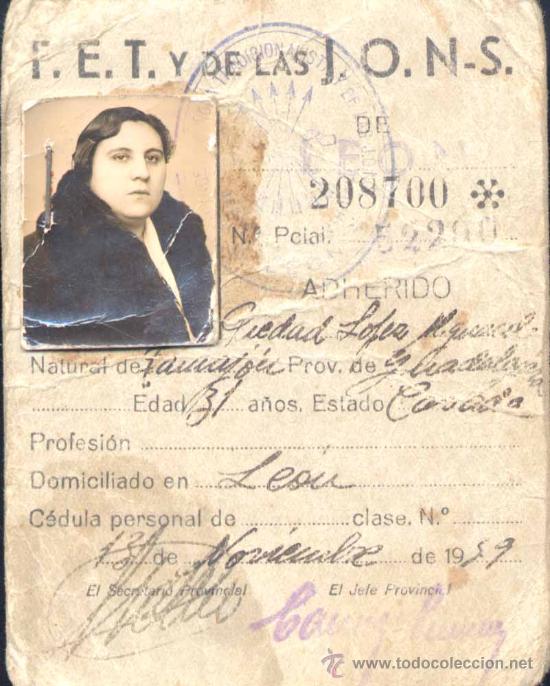 F. E. T. Y DE LAS J. O. N-S.
DE
LEON
208700
N.º Pcial. 52200
ADHERIDO
Piedad Lopez
Natural de Tamajón Prov. de Guadalajara
Edad 31 años. Estado Casada
Profesión
Domiciliado en León
Cédula personal de clase. N.º
de Noviembre de 19
El Secretario Provincial El Jefe Provincial
www.todocoleccion.net